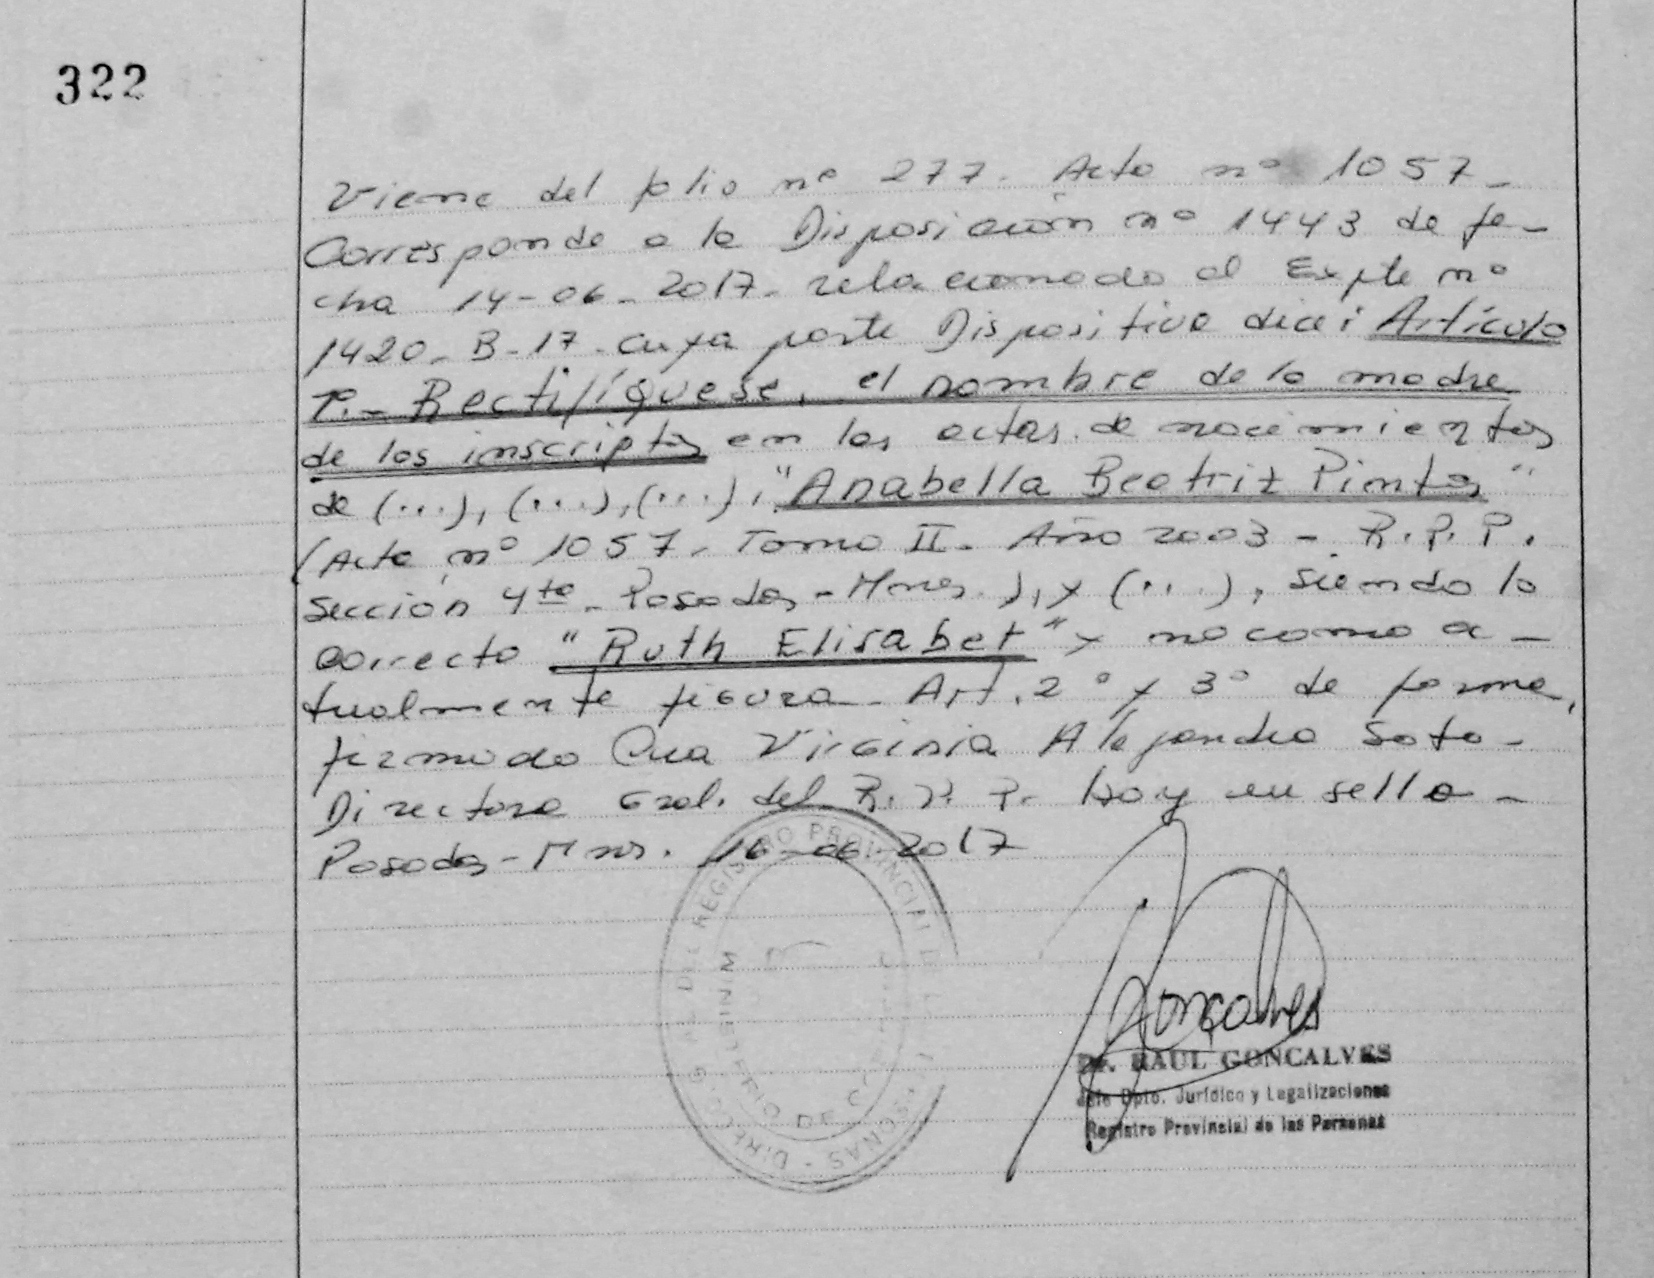 322
Viene del folio nº 277. Acta nº 1057-
Corresponde a la Disposición nº 1443 de fe-
cha 14-06-2017- relacionado al Expte nº
1420-B-17- cuya parte Dispositiva dice: Artículo
1º.- Rectifíquese, el nombre de la madre
de los inscriptos en las actas de nacimientos
de (...), (...), (...), "Anabella Beatriz Pintos"
(Acta nº 1057- Tomo II- Año 2003 - R.P.P.
Sección 4ta- Posadas-Mnes.), y (...), siendo lo
correcto "Ruth Elisabet" y no como ac-
tualmente figura. Art. 2º y 3º de forma,
firmado Virginia Alejandra Soto-
Directora Gral. del R.P.P. Hay un sello-
Posadas-Mnes. 16-06-2017
DIREC. GRAL. DEL REGISTRO PROVINCIAL DE LAS PERSONAS
MINISTERIO DE
Goncalves
Dr. RAUL GONCALVES
Jefe Dpto. Jurídico y Legalizaciones
Registro Provincial de las Personas